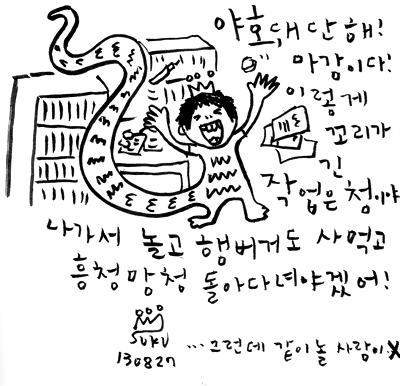 야호, 대단해!
마감이다!
이렇게
꼬리가
긴
작업은 첨이야
나가서 놀고 햄버거도 사먹고
흥청망청 돌아다녀야겠어!
SUKU
130827
...그런데 같이 놀 사람이X